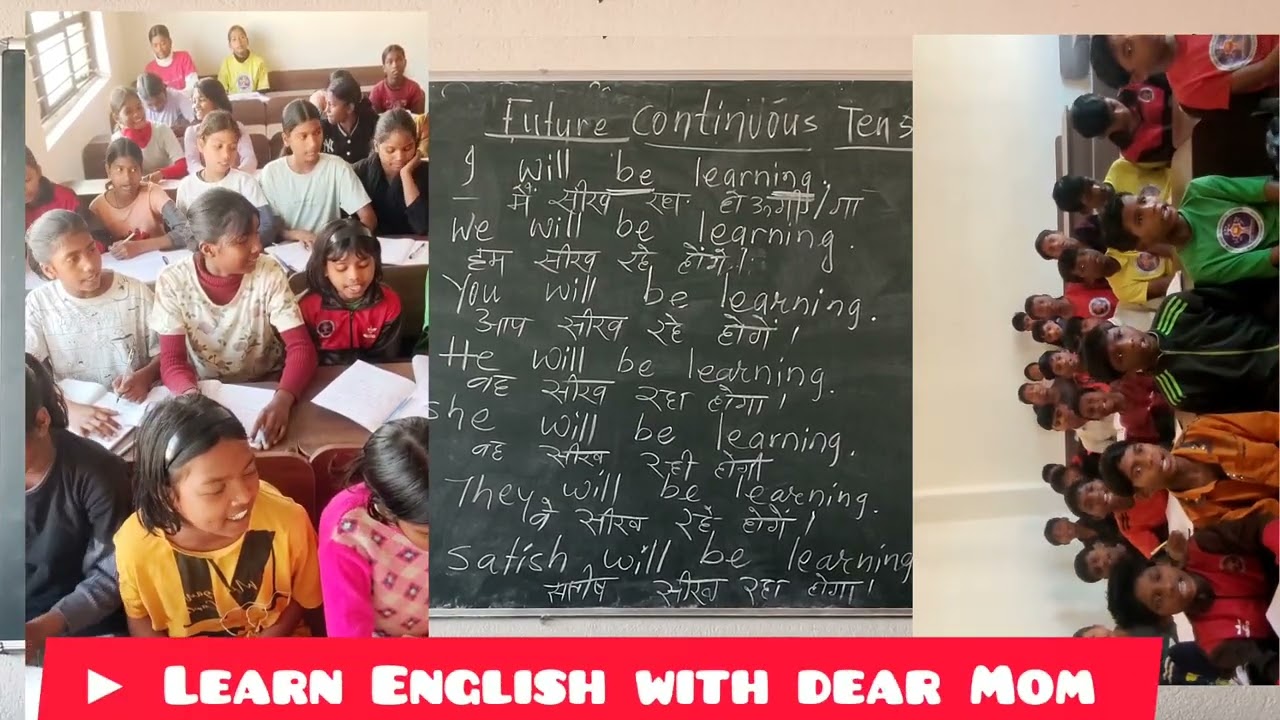 Future Continuous Tens
I will be learning.
मैं सीख रहा होऊंगी/गा
We will be learning.
हम सीख रहे होंगें।
You will be learning.
आप सीख रहे होगें।
He will be learning.
वह सीख रहा होगा।
she will be learning.
वह सीख रही होगी
They will be learning.
वे सीख रहें होगें।
Satish will be learning
सतीष सीख रहा होगा।
LEARN ENGLISH WITH DEAR MOM